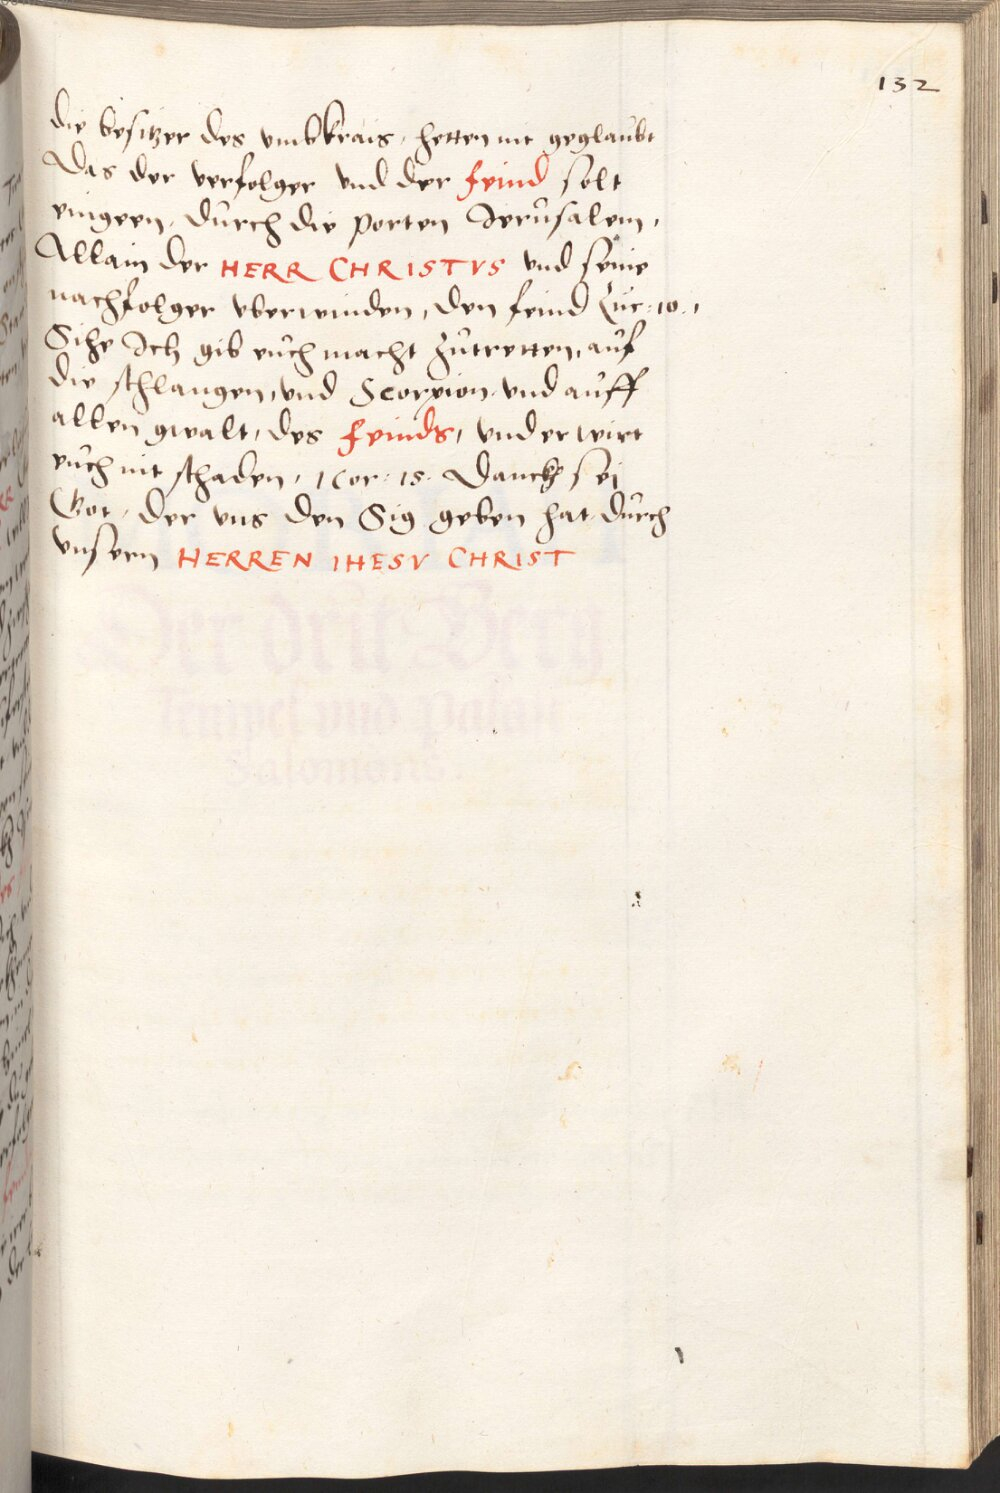 132
die besitzer des vmbkrais, hetten nit geglaubt
Das der verfolger vnd der feind solt
eingeen, durch die porten Jerusalem,
Allain der HERR CHRISTVS vnd seine
nachfolger vberwinden, den feind Luc: 10.,
Sihe Jch gib euch macht zutretten, auf
die schlangen, vnd Scorpion, vnd auff
allen gwalt, des feinds, vnd er wirt
euch nit schaden, 1 Cor: 15. Danck sei
Got, der vns den Sig geben hat, durch
vnsern HERREN IHESV CHRIST
Der drit Berg
Tempel vnd Palast
Salomons.